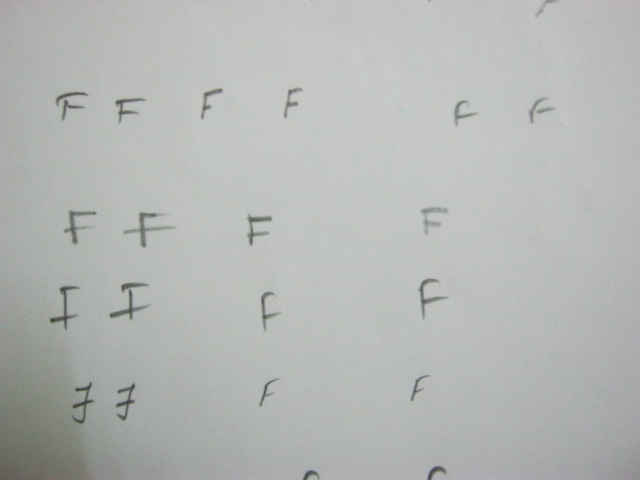 F F F F F F
F F F F
F F F F
F F F F